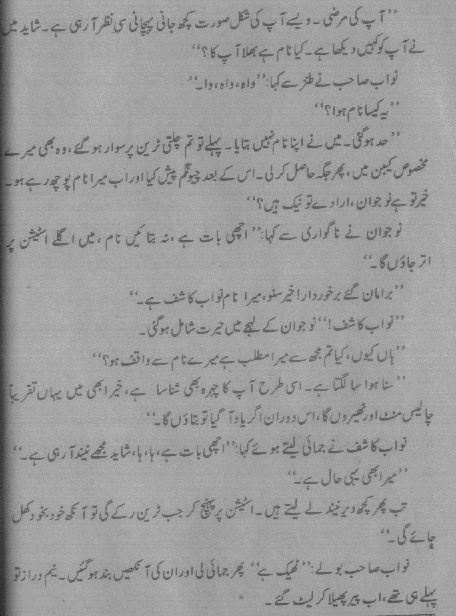 ’’آپ کی مرضی۔ ویسے آپ کی شکل صورت کچھ جانی پہچانی سی نظر آ رہی ہے۔ شاید میں
نے آپ کو کہیں دیکھا ہے۔ کیا نام ہے بھلا آپ کا؟‘‘
نواب صاحب نے طنز سے کہا: ’’واہ، واہ، وا۔‘‘
’’یہ کیسا نام ہوا؟‘‘
’’حد ہو گئی۔ میں نے اپنا نام نہیں بتایا۔ پہلے تو تم چلتی ٹرین پر سوار ہو گئے، وہ بھی میرے
مخصوص کیبن میں، پھر جگہ حاصل کر لی۔ اس کے بعد چیونگم پیش کیا اور اب میرا نام پوچھ رہے ہو۔
خیر تو ہے نوجوان، ارادے تو نیک ہیں؟‘‘
نوجوان نے ناگواری سے کہا: ’’اچھی بات ہے، نہ بتائیں نام، میں اگلے اسٹیشن پر
اتر جاؤں گا۔‘‘
’’برا مان گئے برخوردار! خیر سنو، میرا نام نواب کاشف ہے۔‘‘
’’نواب کاشف!‘‘ نوجوان کے لہجے میں حیرت شامل ہو گئی۔
’’ہاں کیوں، کیا تم مجھ سے میرا مطلب ہے میرے نام سے واقف ہو؟‘‘
’’سنا ہوا سا لگتا ہے۔ اسی طرح آپ کا چہرہ بھی شناسا ہے، خیر ابھی میں یہاں تقریباً
چالیس منٹ اور ٹھیروں گا، اس دوران اگر یاد آ گیا تو بتاؤں گا۔‘‘
نواب کاشف نے جمائی لیتے ہوئے کہا: ’’اچھی بات ہے، ہا، ہا، شاید مجھے نیند آ رہی ہے۔‘‘
’’میرا بھی یہی حال ہے۔‘‘
تب پھر کچھ دیر نیند لے لیتے ہیں۔ اسٹیشن پر پہنچ کر جب ٹرین رکے گی تو آنکھ خود بخود کھل
جائے گی۔‘‘
نواب صاحب بولے: ’’ٹھیک ہے‘‘ پھر جمائی لی اور ان کی آنکھیں بند ہو گئیں۔ نیم دراز تو
پہلے ہی تھے، اب پیر پھیلا کر لیٹ گئے۔